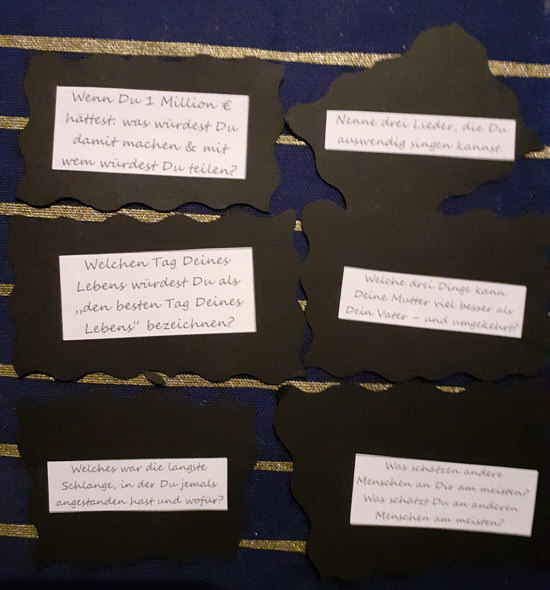 Wenn Du 1 Million €
hättest: was würdest Du
damit machen & mit
wem würdest Du teilen?
Nenne drei Lieder, die Du
auswendig singen kannst.
Welchen Tag Deines
Lebens würdest Du als
„den besten Tag Deines
Lebens“ bezeichnen?
Welche drei Dinge kann
Deine Mutter viel besser als
Dein Vater – und umgekehrt?
Welches war die längste
Schlange, in der Du jemals
angestanden hast und wofür?
Was schätzen andere
Menschen an Dir am meisten?
Was schätzt Du an anderen
Menschen am meisten?